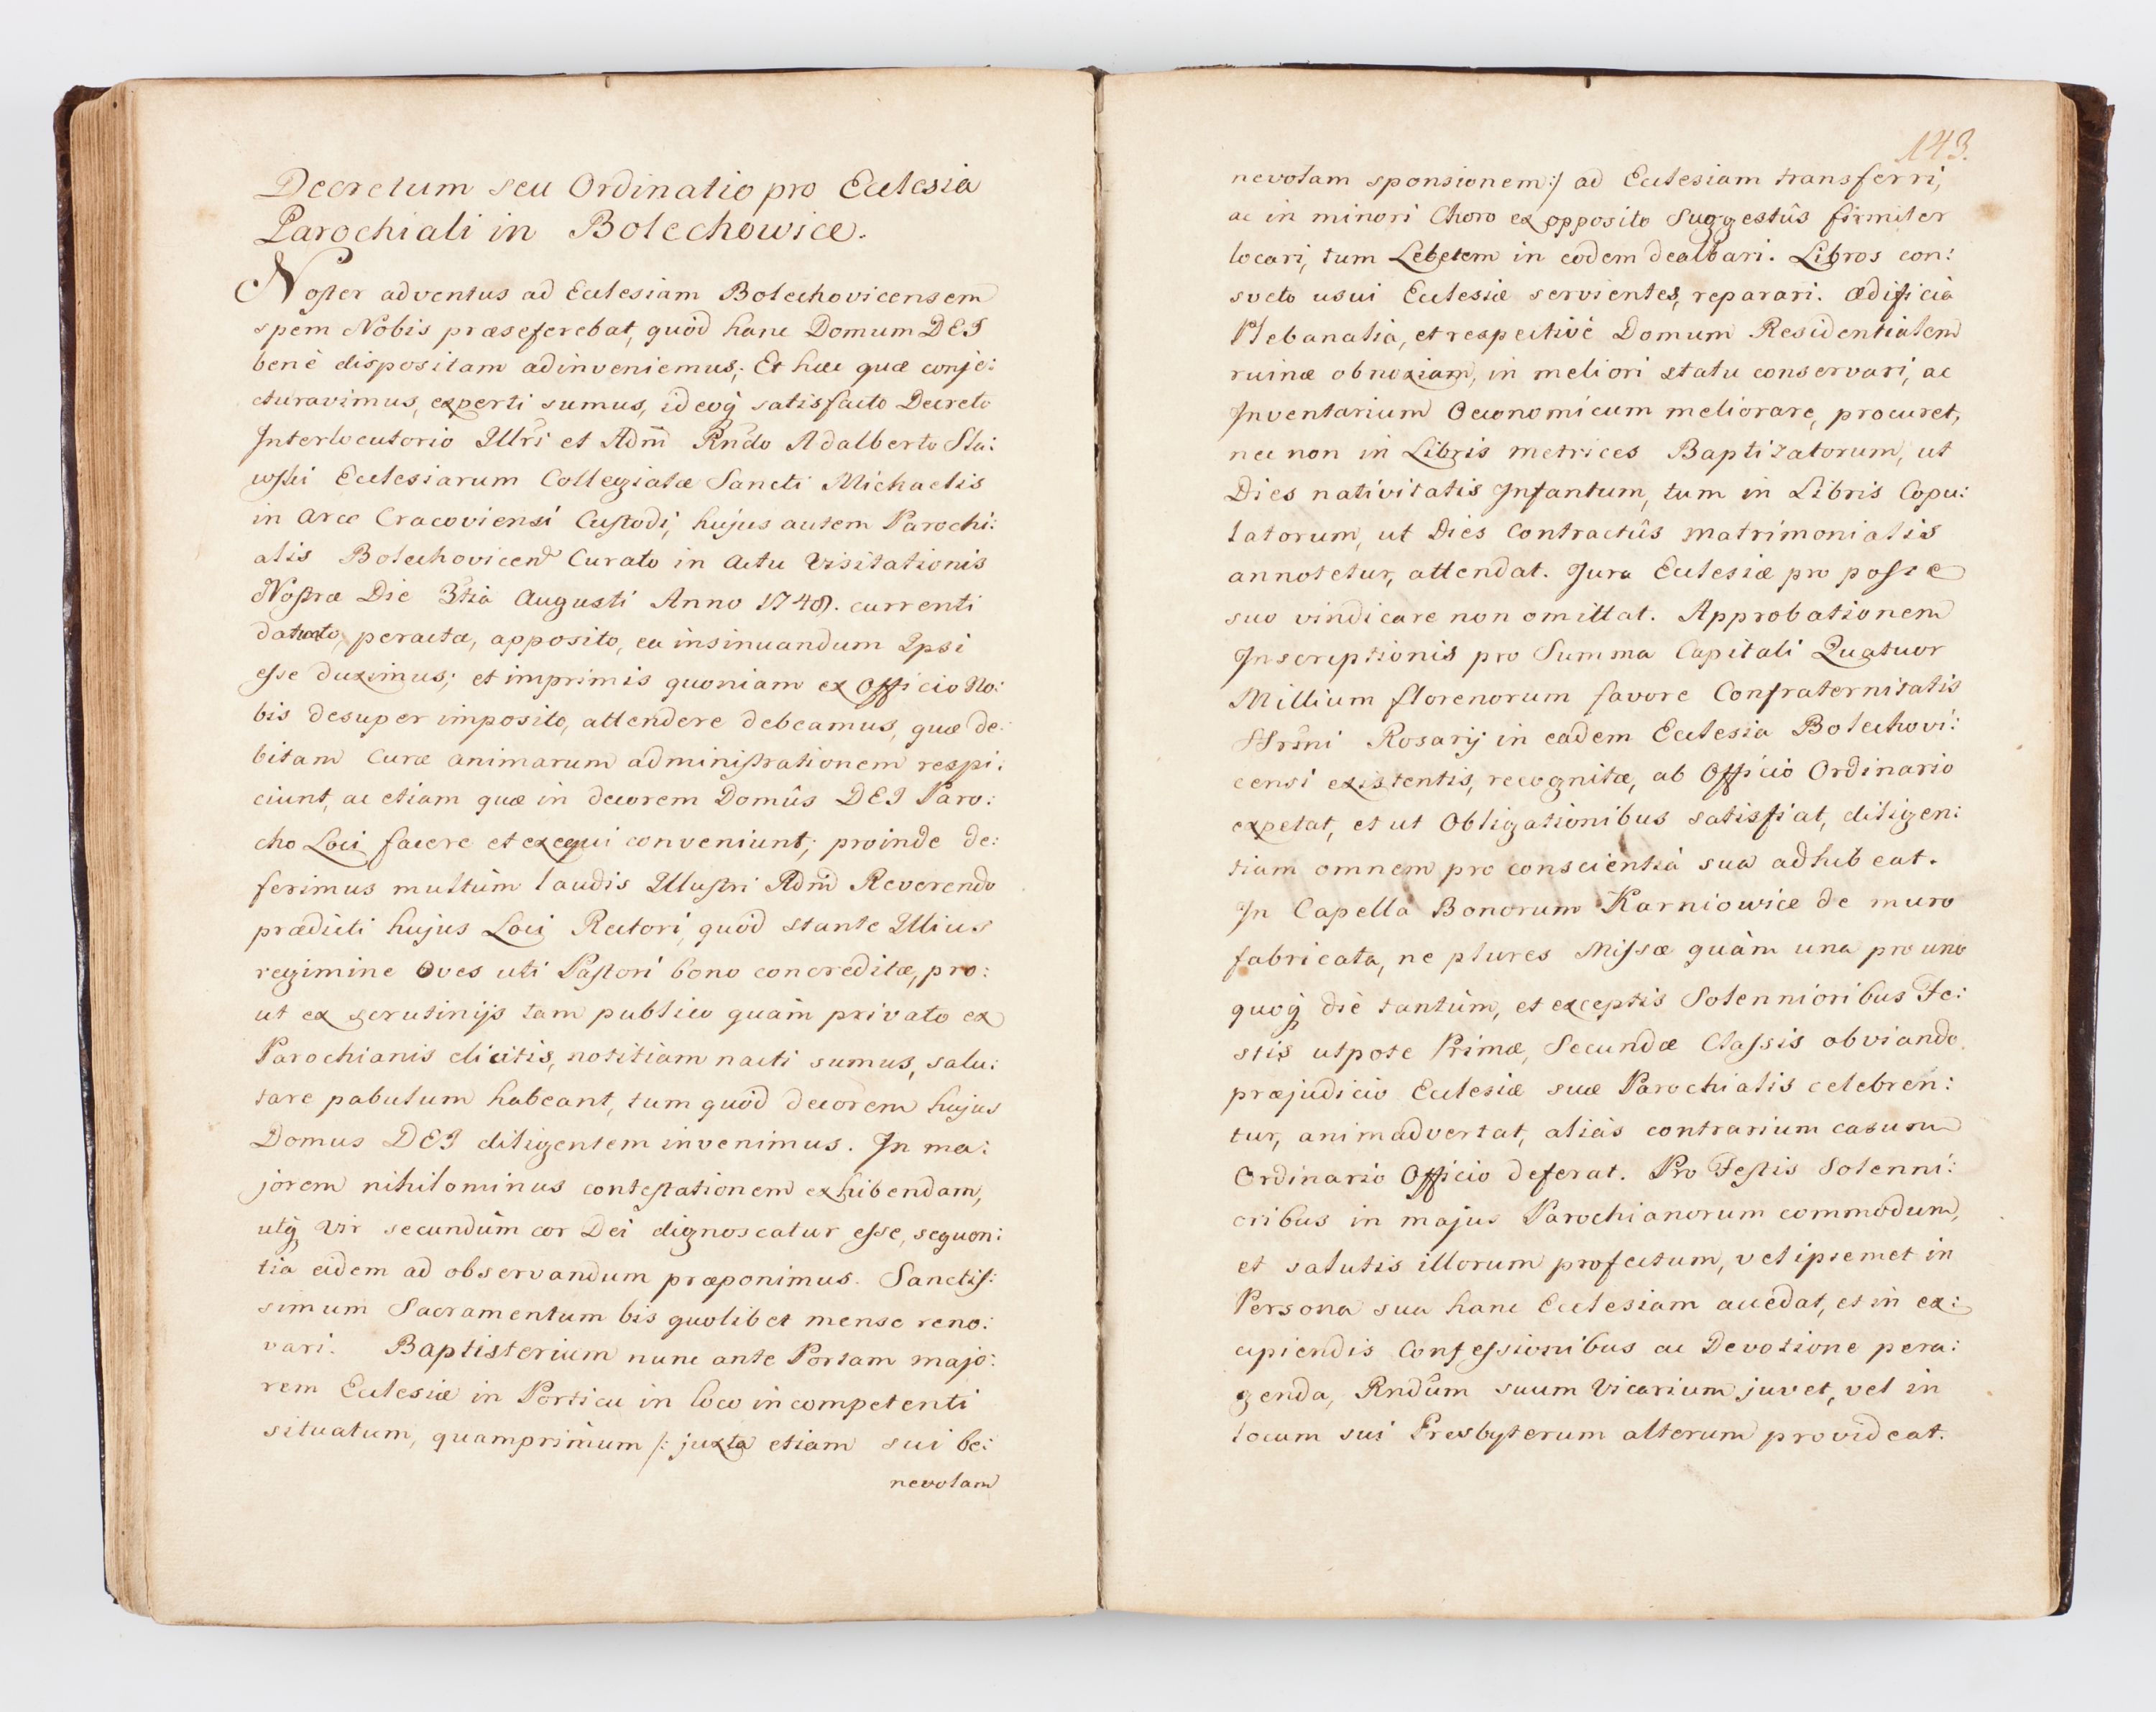 Decretum seu Ordinatio pro Ecclesia
Parochiali in Bolechowice.
Noster adventus ad Ecclesiam Bolechovicensem
spem Nobis præseferebat, quòd hanc Domum DEI
benè dispositam adinveniemus; Et hæc quæ conje:
cturavimus, experti sumus, ideoq; satisfacto Decreto
Interlocutorio Illrĩ et Adm̃ Rñdo Adalberto Sla:
wski Ecclesiarum Collegiatæ Sancti Michaelis
in Arce Cracoviensi Custodi, hujus autem Parochi:
alis Bolechovicen Curato in Actu Visitationis
Nostræ Die 3tia Augusti Anno 1748. currenti
peractæ, apposito, ea insinuandum Ipsi
esse duximus; et imprimis quoniam ex Officio No:
bis desuper imposito, attendere debeamus, quæ de:
bitam Curæ animarum administrationem respi:
ciunt, ac etiam quæ in decorem Domûs DEI Paro:
cho Loci facere et exequi conveniunt; proinde de:
ferimus multùm laudis Illustri Adm̃ Reverendo
prædicti hujus Loci Rectori, quòd stante Illius
regimine Oves uti Pastori bono concreditæ, pro:
ut ex scrutinijs tam publico quàm privato ex
Parochianis elicitis, notitiam nacti sumus, salu:
tare pabulum habeant, tum quòd decorem hujus
Domus DEI diligentem invenimus. In ma:
jorem nihilominus contestationem exhibendam,
utq; Vir secundùm cor Dei dignoscatur esse, sequen:
tia eidem ad observandum præponimus. Sanctis:
simum Sacramentum bis quolibet mense reno:
vari. Baptisterium nunc ante Portam majo:
rem Ecclesiæ in Porticu in loco incompetenti
situatum, quamprimùm /: juxta etiam sui be:
nevolam
143.
nevolam sponsionem:/ ad Ecclesiam transferri,
ac in minori Choro ex opposito Suggestûs firmiter
locari, tum Lebetem in eodem dealbari. Libros con:
sveto usui Ecclesiæ servientes, reparari. Ædificia
Plebanalia, et respectivè Domum Residentialem
ruinæ obnoxiam, in meliori statu conservari, ac
Inventarium Oeconomicum meliorare, procuret,
nec non in Libris metrices Baptizatorum, ut
Dies nativitatis Infantum, tum in Libris Copu:
latorum, ut Dies Contractûs Matrimonialis
annotetur, attendat. Jura Ecclesiæ pro posse
suo vindicare non omittat. Approbationem
Inscriptionis pro Summa Capitali Quatuor
Millium florenorum favore Confraternitatis
SSrm̃i Rosarij in eadem Ecclesia Bolechovi:
censi existentis, recognitæ, ab Officio Ordinario
expetat, et ut Obligationibus satisfiat, diligen:
tiam omnem pro conscientia sua adhibeat.
In Capella Bonorum Karniowice de muro
fabricata, ne plures Missæ quàm una pro uno
quoq; die tantùm, et exceptis Solennioribus Fe:
stis utpote Primæ, Secundæ Classis obviando
præjudicio Ecclesiæ suæ Parochialis celebren:
tur, animadvertat, aliàs contrarium casum
Ordinario Officio deferat. Pro Festis Solenni:
oribus in majus Parochianorum commodum,
et salutis illorum profectum, vel ipsemet in
Persona sua hanc Ecclesiam accedat, et in ex:
cipiendis Confessionibus ac Devotione pera:
genda, Rndûm suum Vicarium juvet, vel in
locum sui Presbyterum alterum provideat.